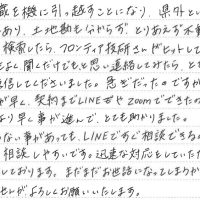 職を機に引っ越すことになり、県外とい
あり、土地勘も分からず とりあえず不動
検索したら、フロンティア技研さんがヒットして
とく聞くだけでもと思い連絡してみたら、と
信してくださいました。急ぎだったのですが
が早く、契約までLINEやzoomでできたの
より早く事が進んで、とても助かりました。
ない事があっても、LINEですぐ相談できるの
相談しやすいです。迅速な対応をしていただ
しております。まだまだお世話になってしまうか
せんがよろしくお願いいたします。